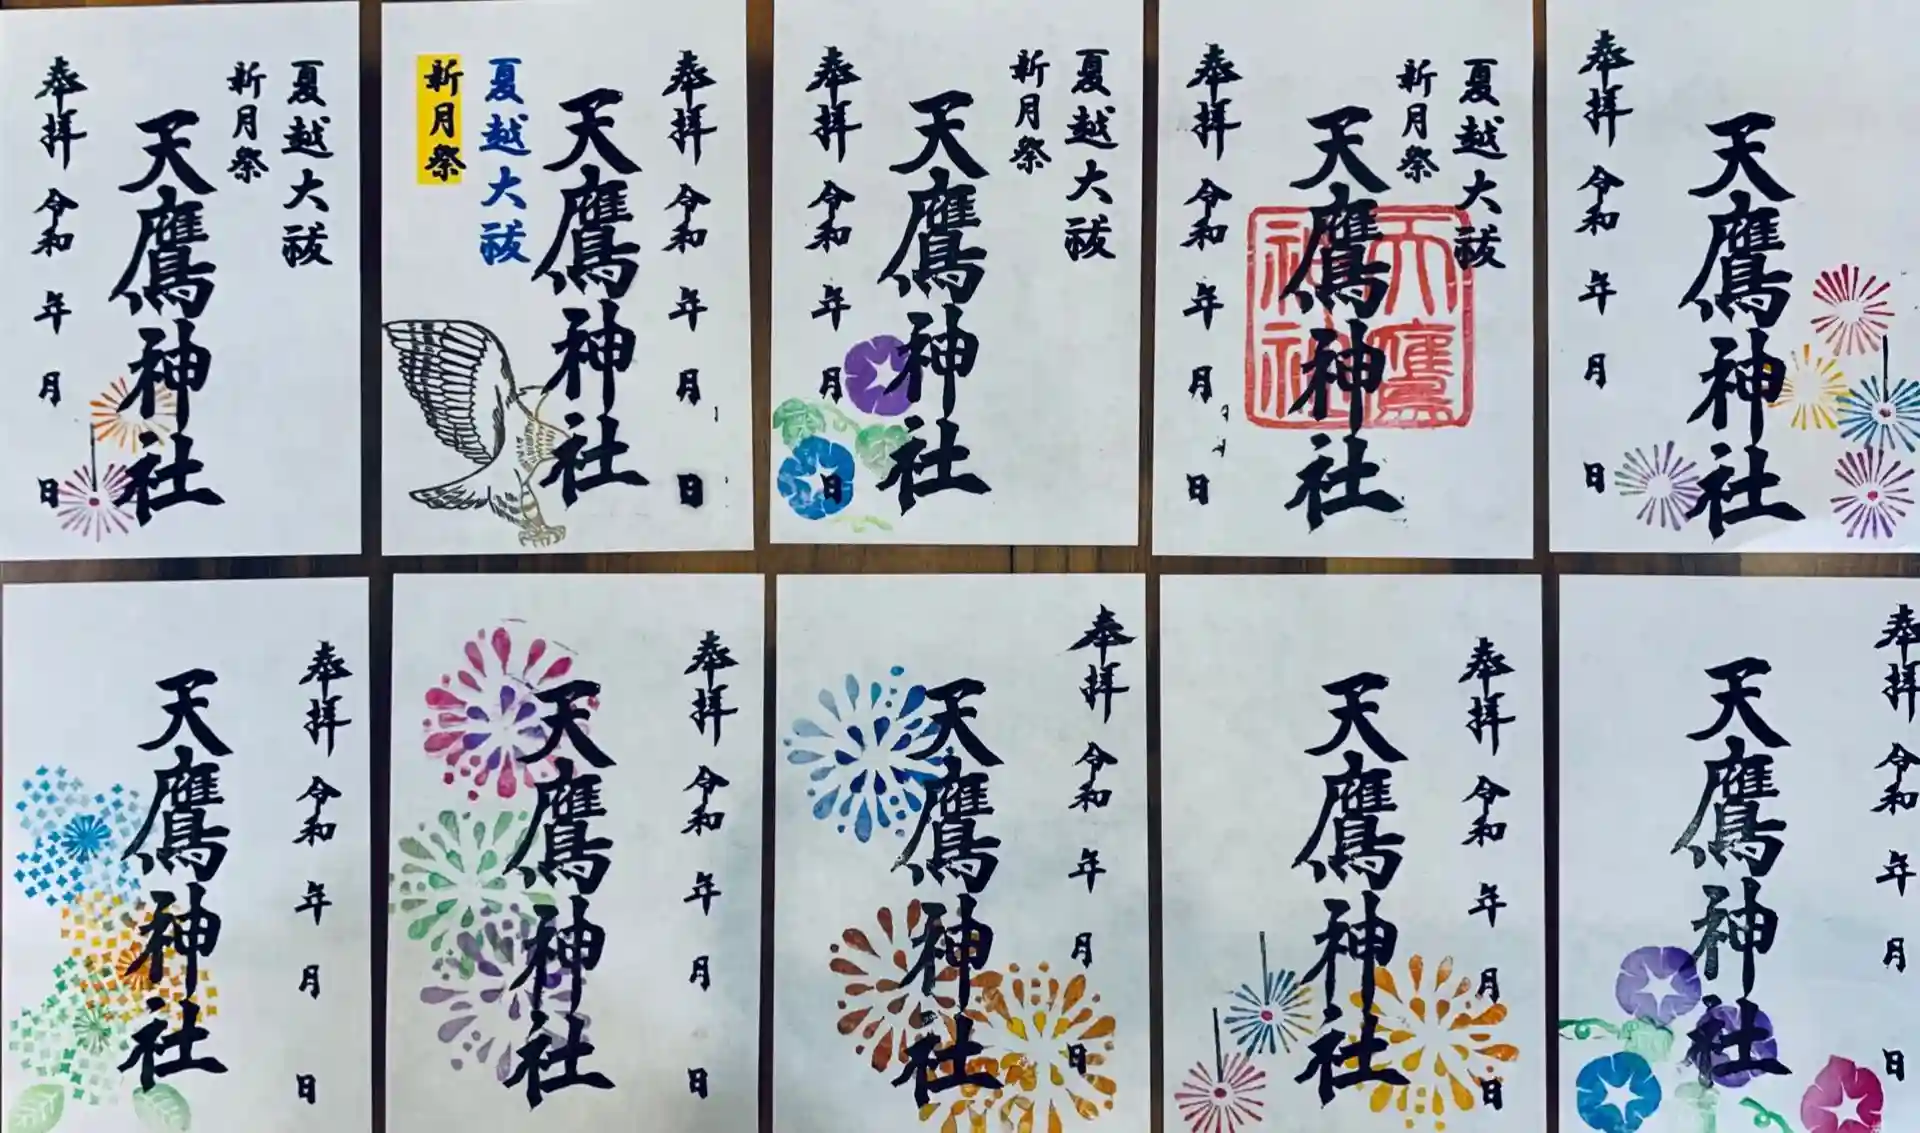 夏越大祓
新月祭
天鷹神社
奉拝 令和 年 月 日
奉拝 令和 年 月 日
天鷹神社
夏越大祓
新月祭
夏越大祓
新月祭
天鷹神社
奉拝 令和 年 月 日
夏越大祓
新月祭
天鷹神社
天鷹神社
奉拝 令和 年 月 日
天鷹神社
奉拝 令和 年 月 日
奉拝 令和 年 月 日
天鷹神社
奉拝 令和 年 月 日
天鷹神社
奉拝 令和 年 月 日
天鷹神社
奉拝 令和 年 月 日
天鷹神社
奉拝 令和 年 月 日
天鷹神社